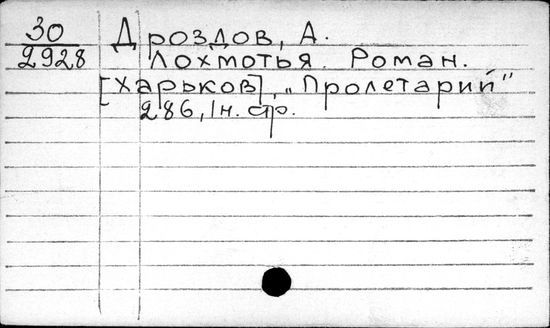 30
2928
Дроздов, А.
Лохмотья. Роман.
[Харьков], „Пролетарий"
286, 1 н. стр.